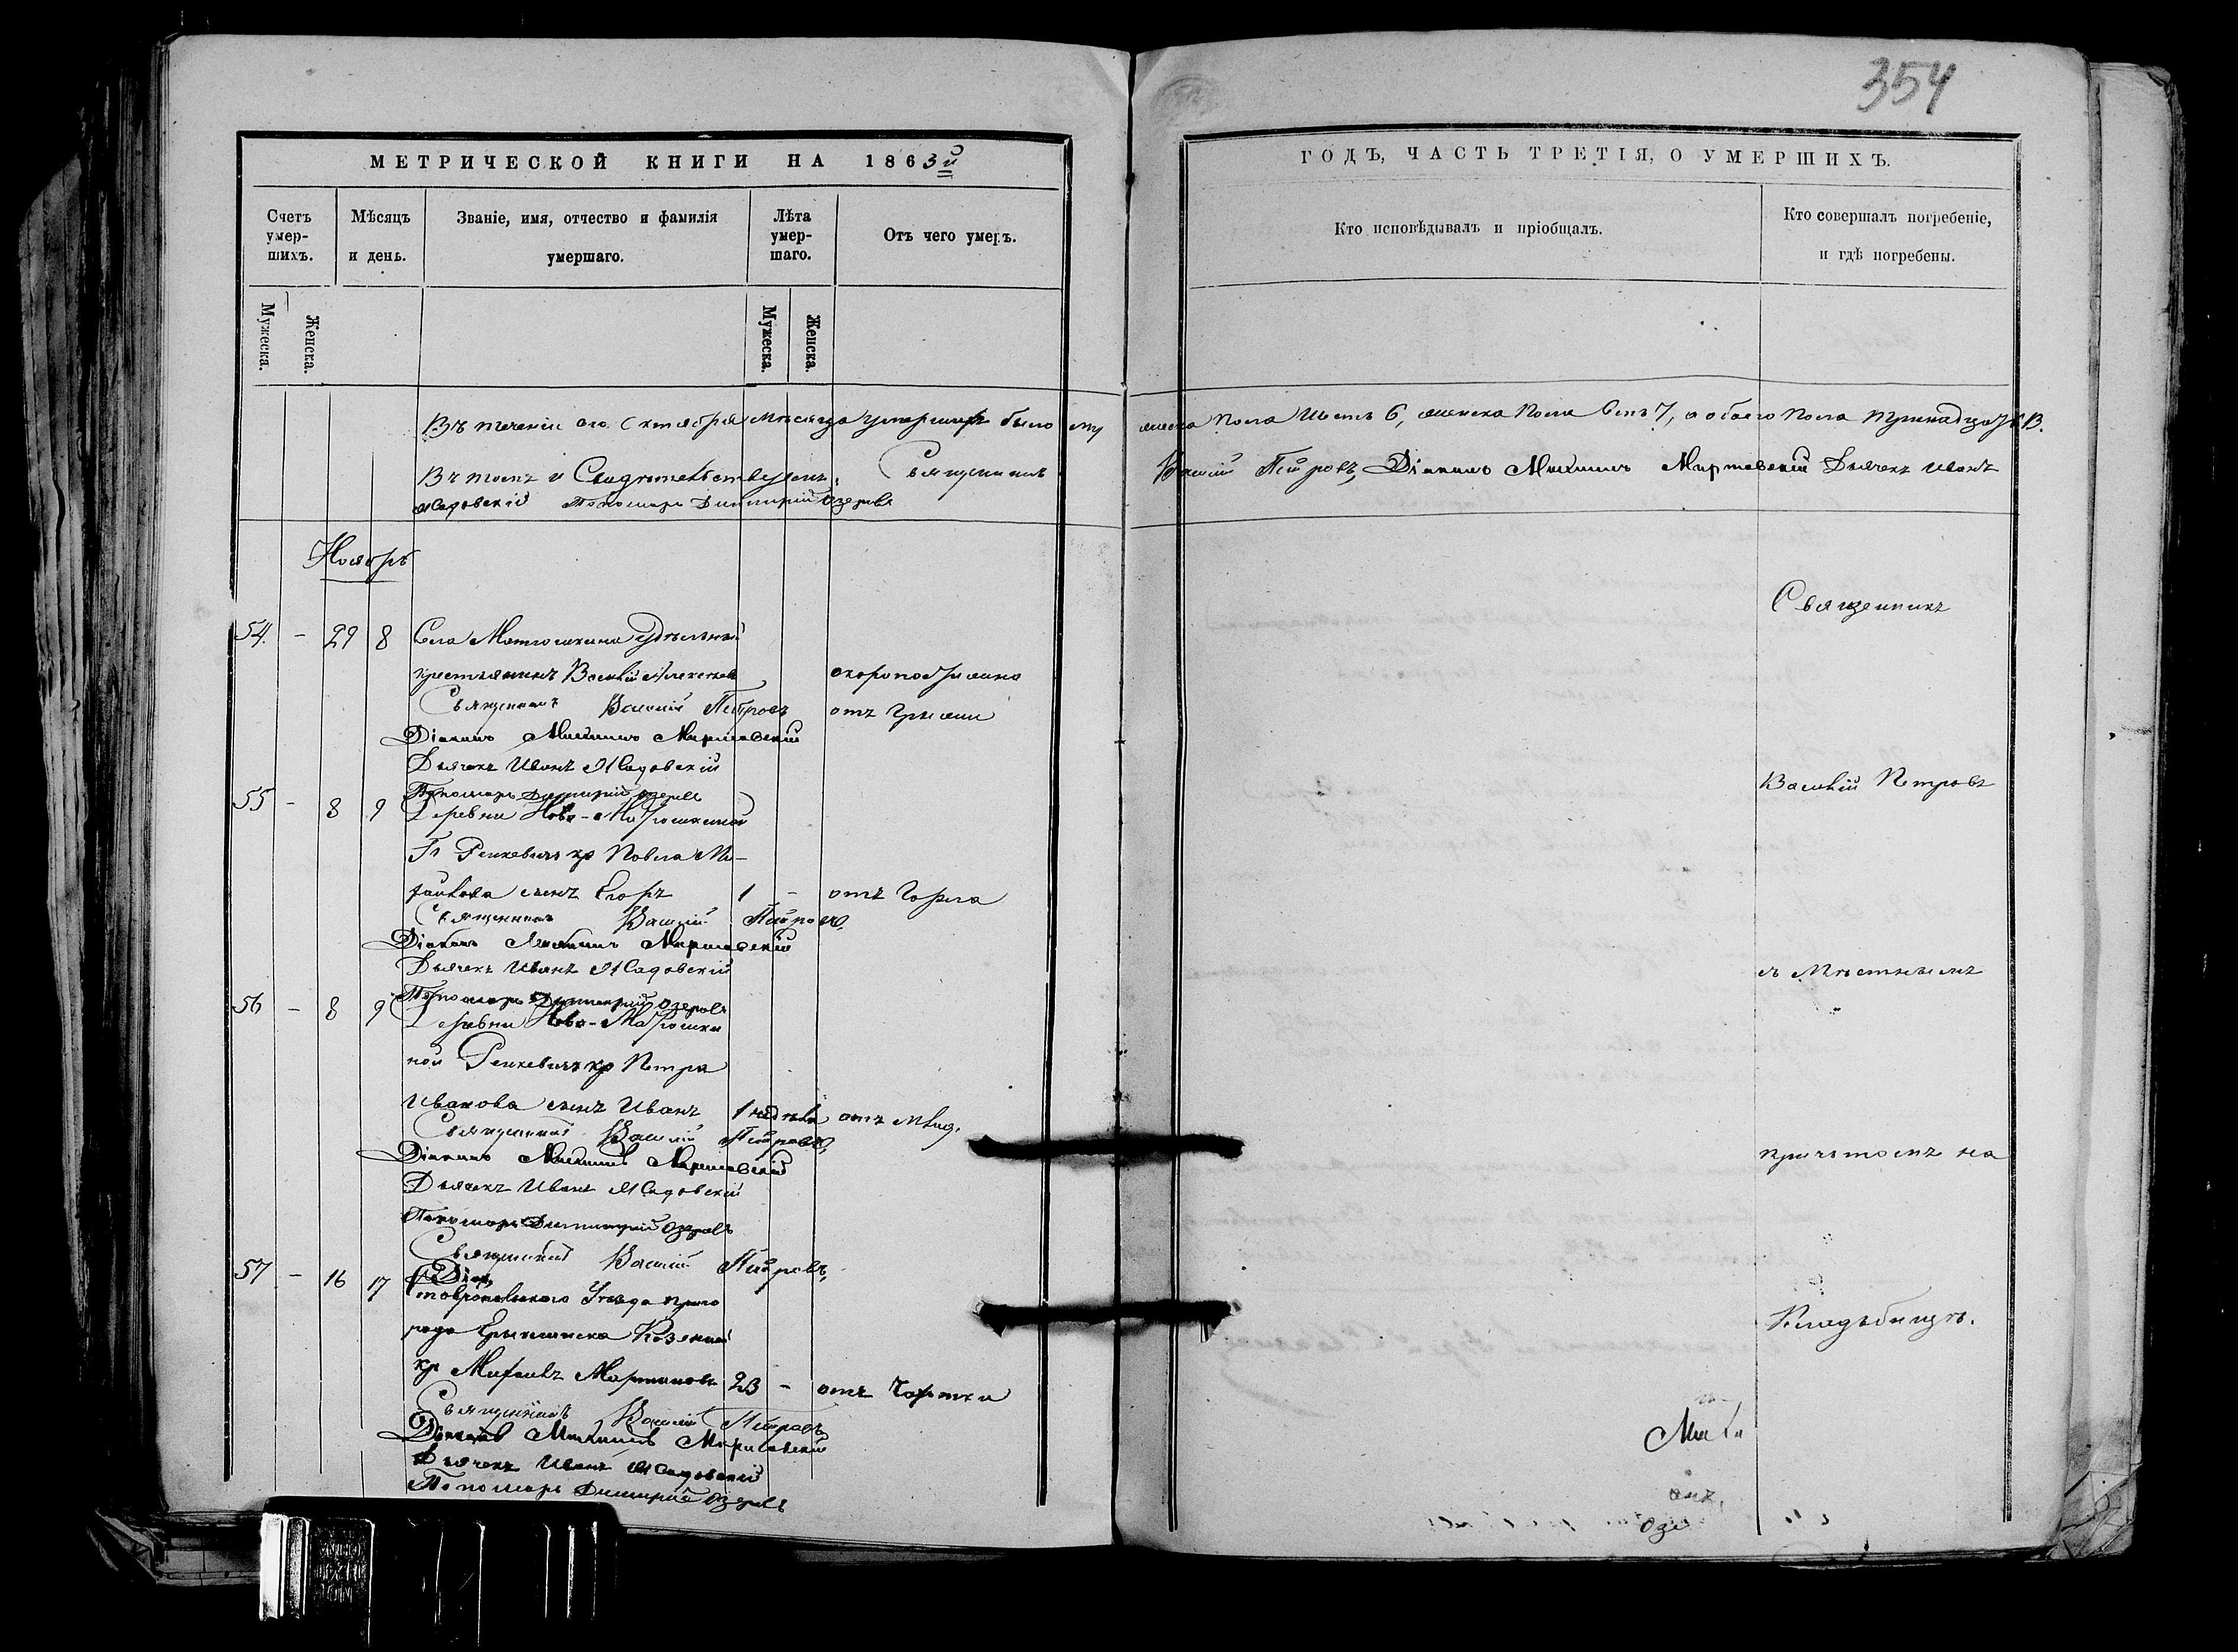 354
МЕТРИЧЕСКОЙ КНИГИ НА 1863й
ГОДЪ, ЧАСТЬ ТРЕТІЯ, О УМЕРШИХЪ.
Счетъ умер-шихъ.
Мѣсяцъ и день.
Званіе, имя, отчество и фамилія умершаго.
Лѣта умер-шаго.
Отъ чего умеръ.
Кто исповѣдывалъ и пріобщалъ.
Кто совершалъ погребеніе, и гдѣ погребены.
Мужеска.
Женска.
Мужеска.
Женска.
Въ теченіи сего Октября мѣсяца умершихъ было му
жеска пола шесть 6, женска пола семь 7, а обоего пола тринадцать 13.
Въ томъ и Свидѣтельствуемъ: Священникъ
Василій Петровъ, Діаконъ Михаилъ Дьячекъ Иванъ
Пономарь Димитрій Озеровъ
Ноябрь
54. - 29 8 Села удѣльный
крестьянинъ Василій Алексѣевъ скоропостижно
Священникъ Василій Петровъ отъ грыжи
Діаконъ Михаилъ
Дьячекъ Иванъ
Пономарь Димитрій Озеровъ
55 - 8 9 Деревни Ново-
Павла Ми-
хайлова сынъ Егоръ 1 - отъ горла
Священникъ Василій Петровъ,
Діаконъ Михаилъ
Дьячекъ Иванъ
Пономарь Димитрій Озеровъ
56 - 8 9 Деревни Ново-
ной кр Петра
Иванова сынъ Иванъ 1 недѣли отъ
Священникъ Василій Петровъ,
Діаконъ Михаилъ
Дьячекъ Иванъ
Пономарь Димитрій Озеровъ
Священникъ Василій Петровъ,
57 - 16 17 Ставропольскаго Уѣзда приго
рода Ерыклинска Казенный
кр Михаилъ Мартиновъ 23 - отъ чахотки
Священникъ Василій Петровъ
Діаконъ Михаилъ
Дьячекъ Иванъ
Пономарь Димитрій Озеровъ
Священникъ
Василій Петровъ
съ мѣстнымъ
причтомъ на
Кладбищѣ.